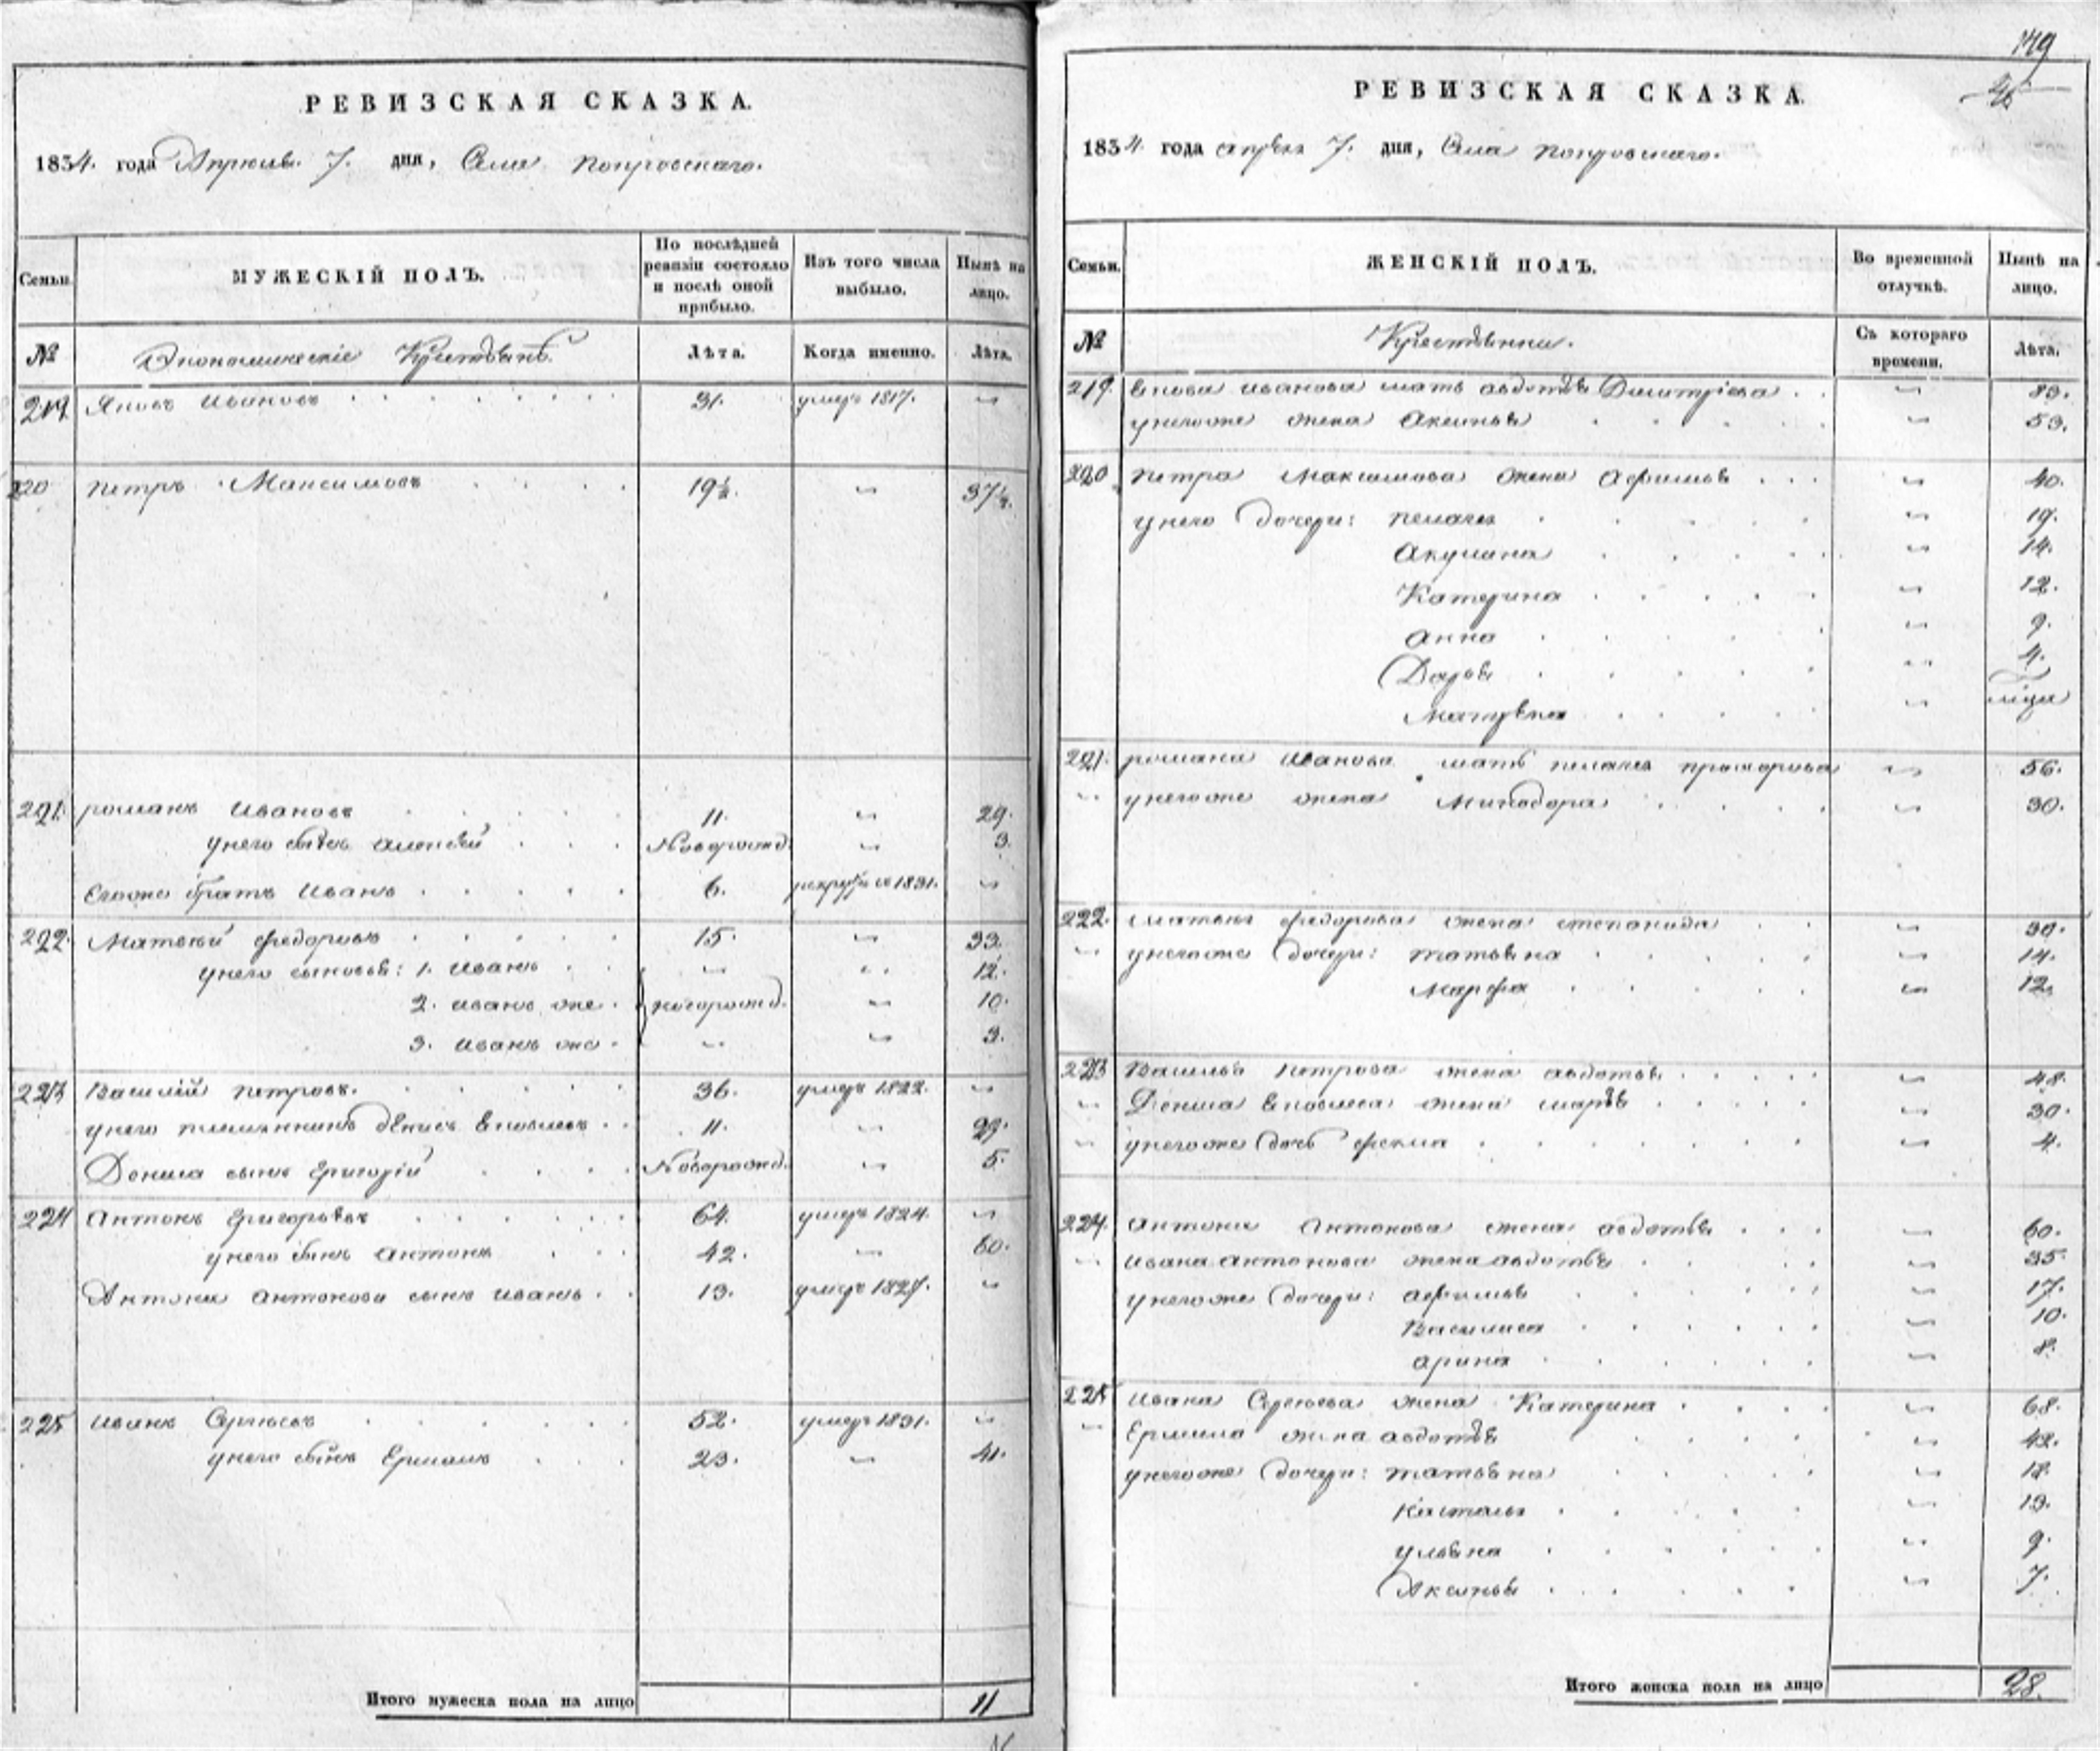 РЕВИЗСКАЯ СКАЗКА.
1834. года Апреля 7. дня, Села Покровскаго.
Семьи.
МУЖЕСКІЙ ПОЛЪ.
По послѣдней ревизіи состояло и послѣ оной прибыло.
Изъ того числа выбыло.
Нынѣ на лицо.
№
Экономическіе Крестьянѣ.
Лѣта.
Когда именно.
Лѣта.
219 Яковъ Ивановъ 31. умеръ 1817. "
220 Петръ Максимовъ 19½. " 37½.
221. Романъ Ивановъ 11. " 29.
у него сынъ Алексѣй Новорожд. " 3.
Егоже братъ Иванъ 6. 1831. "
222. Матвѣй Федоровъ 15. " 33.
у него сыновья: 1. Иванъ " " 12.
2. Иванъ же новорожд. " 10.
3. Иванъ же " " 3.
223 Василій Петровъ. 36. умеръ 1822. "
у него племянникъ Денисъ Яковлевъ 11. " 29.
Дениса сынъ Григорій Новорожд. " 5.
224 Антонъ Григорьевъ 64. умеръ 1824. "
у него сынъ Антонъ 42. " 60.
Антона Антонова сынъ Иванъ 13. умеръ 1827. "
225 Иванъ Сергѣевъ 52. умеръ 1831. "
у него сынъ Ермолъ 23. " 41.
Итого мужеска пола на лицо 11
149
РЕВИЗСКАЯ СКАЗКА.
1834. года апреля 7. дня, Села Покровскаго.
Семьи.
ЖЕНСКІЙ ПОЛЪ.
Во временной отлучкѣ.
Нынѣ на лицо.
№
Крестьянки.
Съ котораго времени.
Лѣта.
219. Якова Иванова мать Авдотья Дмитріева " 83.
у негоже жена Аксинья " 53.
220 Петра Максимова жена Афимья " 40.
у него дочери: Пелагея " 19.
Акулина " 14.
Катерина " 12.
Анна " 9.
Дарья " 4.
Матрена "
221. Романа Иванова мать Пелагея Прохорова " 56.
" у негоже жена Минодора " 30.
222. Матвея Федорова жена Степанида " 30.
" у негоже дочери: Татьяна " 14.
Марфа " 12.
223 Василья Петрова жена Авдотья " 48.
" Дениса Яковлева жена Марья " 30.
" у негоже дочь Фекла " 4.
224. Антона Антонова жена Авдотья " 60.
" Ивана Антонова жена Авдотья " 35.
у негоже дочери: Афимья " 17.
Василиса " 10.
Арина " 8.
225 Ивана Сергѣева жена Катерина " 68.
" Ермила жена Авдотья " 42.
у негоже дочери: Татьяна " 18.
Настасья " 13.
Ульяна " 9.
Аксинья " 7.
Итого женска пола на лицо 28.